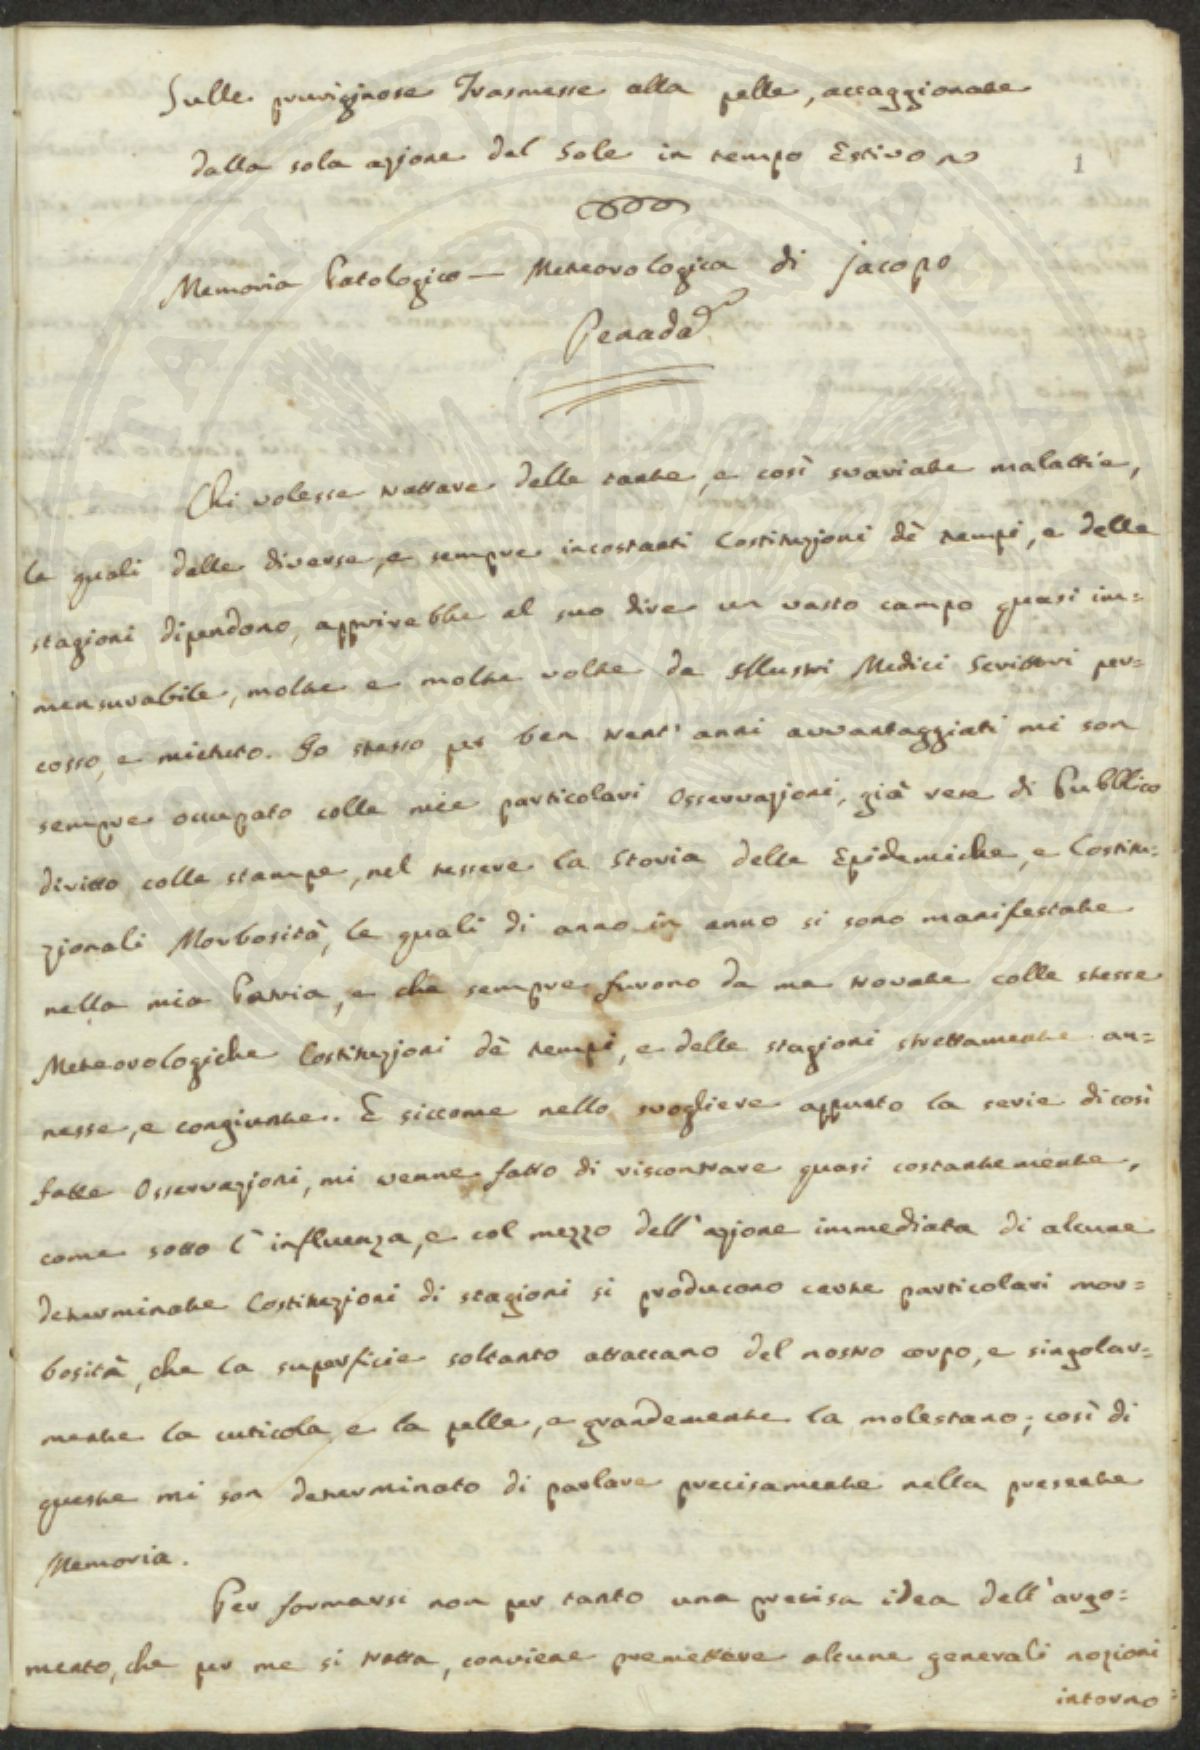 Sulle pruriginose Trasmesse alla pelle, accaggionate
dalla sola azione del Sole in tempo Estivo
1
Memoria Patologico - Meteorologica di Jacopo
Penada
Chi volesse trattare delle tante, e così svariate malattie,
le quali dalle diverse, e sempre incostanti Costituzioni dè tempi, e delle
stagioni dipendono, apprirebbe al suo dire un vasto campo quasi im=
mensurabile, molte e molte volte da Illustri Medici Scrittori per=
corso, e mietuto. Io stesso per ben trent' anni avvantaggiati mi son
sempre occupato colle mie particolari Osservazioni, già rese di Pubblico
diritto colle stampe, nel tessere la Storia delle Epidemiche, e Costitu=
zionali Morbosità, le quali di anno in anno si sono manifestate
nella mia Patria, e che sempre furono da me trovate colle stesse
Meteorologiche Costituzioni dè tempi, e delle stagioni strettamente an=
nesse, e congiunte. E siccome nello svogliere appunto la serie di così
fatte Osservazioni, mi venne fatto di riscontrare quasi costantemente,
come sotto l' influenza, e col mezzo dell' azione immediata di alcune
determinate Costituzioni di stagioni si producono certe particolari mor=
bosità, che la superficie soltanto attaccano del nostro corpo, e singolar=
mente la cuticola, e la pelle, e grandemente la molestano; così di
queste mi son determinato di parlare precisamente nella presente
Memoria.
Per formarsi non per tanto una precisa idea dell' argo=
mento, che per me si tratta, conviene premettere alcune generali nozioni
intorno